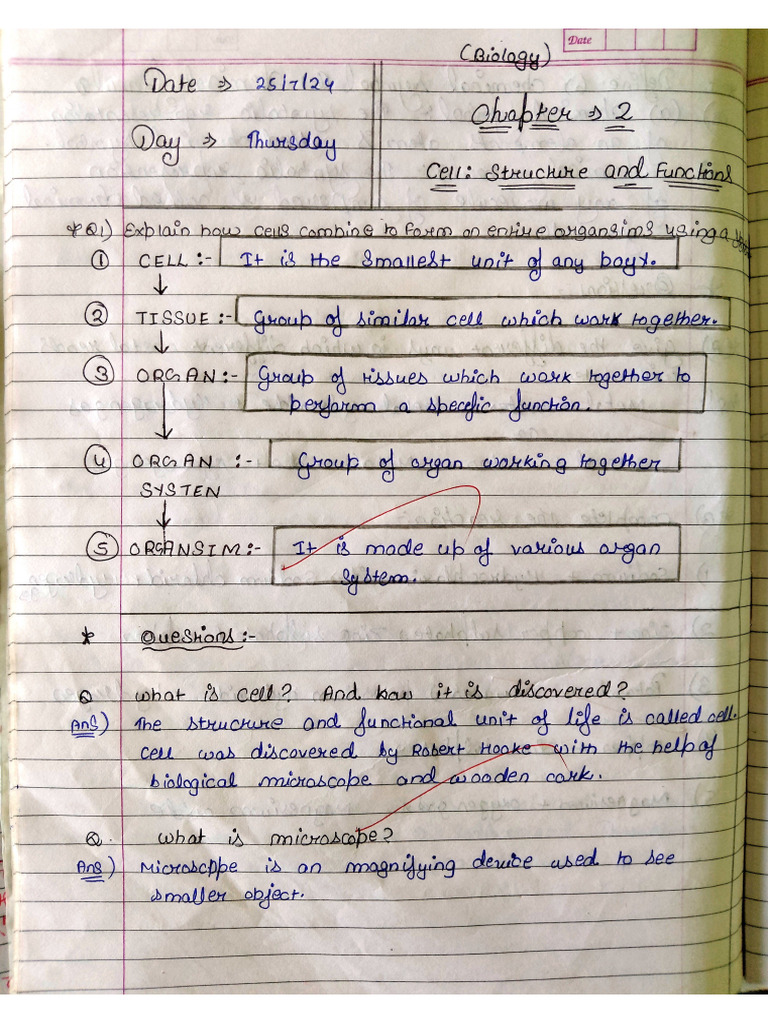 Date
(Biology)
Date ⇒ 25/7/24
Chapter ⇒ 2
Day ⇒ Thursday
Cell: Structure and Functions
* Q1) Explain how cells combine to form an entire organsims using a
① CELL :- It is the smallest unit of any boyx.
② TISSUE :- Group of similar cell which work together.
③ ORGAN :- Group of tissues which work together to
perform a specefic function.
④ ORGAN :- Group of organ working together
SYSTEN
⑤ ORGANSIM :- It is made up of various organ
system.
* Quesions :-
Q what is cell? And how it is discovered?
Ans) The structure and functional unit of life is called cell.
Cell was discovered by Robert Hooke with the help of
biological microscope and wooden cork.
Q. what is microscope?
Ans) Microscope is an magnifying device used to see
smaller object.